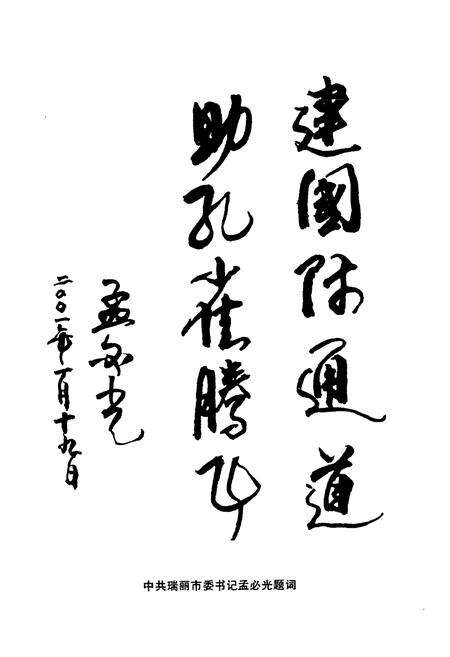 建国际通道
助孔雀腾飞
孟必光
二〇〇一年一月十九日
中共瑞丽市委书记孟必光题词